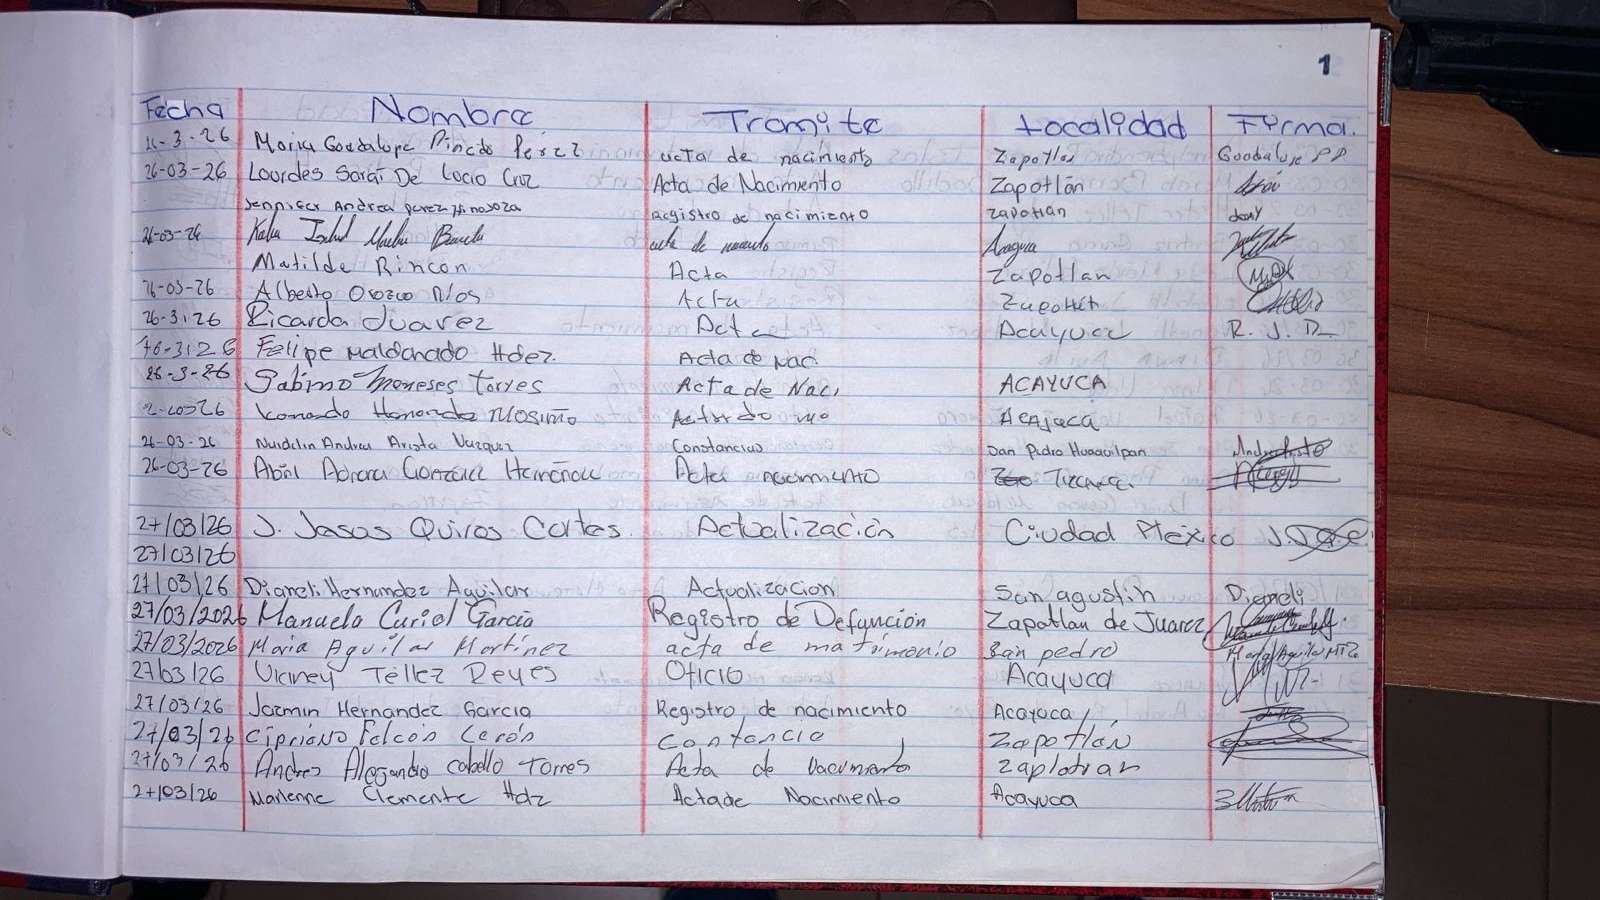 1
Fecha Nombre Tramite Localidad Firma.
26-3-26 Maria Guadalupe Pinedo Perez acta de nacimiento Zapotlan Guadalupe PP
26-03-26 Lourdes Saraí De Lucio Cruz Acta de Nacimiento Zapotlán
Jennifer Andrea perez Hinojoza registro de nacimiento zapotlan
26-03-26 acta de
Matilde Rincon Acta Zapotlan
26-03-26 Alberto Orozco Rios Acta
26-3-26 Ricarda Juarez Acta Acayuca R. J. R.
26-3-26 Felipe Maldonado Hdez. Acta de Nac.
26-3-26 Sabino Meneses Torres Acta de Nac. ACAYUCA
Acayuca
26-03-26 Andrea Arista Vazquez Constancias San Pedro Huaquilpan
26-03-26 Abril Acta nacimiento
27/03/26 J. Jesos Quiros Cortes. Actualización Ciudad México
27/03/26
27/03/26 Dianeli Hernandez Aguilar Actualizacion San agustin Dianeli
27/03/2026 Manuela Curiel Garcia Registro de Defunción Zapotlan de Juarez
27/03/2026 Maria Aguilar Martinez acta de matrimonio San pedro Maria Aguilar MTZ
27/03/26 Téllez Reyes Oficio Acayuca
27/03/26 Jazmin Hernandez Garcia Registro de nacimiento Acayuca
27/03/26 Cipriano Falcón Cerón Contancia Zapotlán
27/03/26 Andres Alejandro Cabello Torres Acta de nacimiento Zaplotlan
27/03/26 Marlenne Clemente Hdz Acta de Nacimiento Acayuca